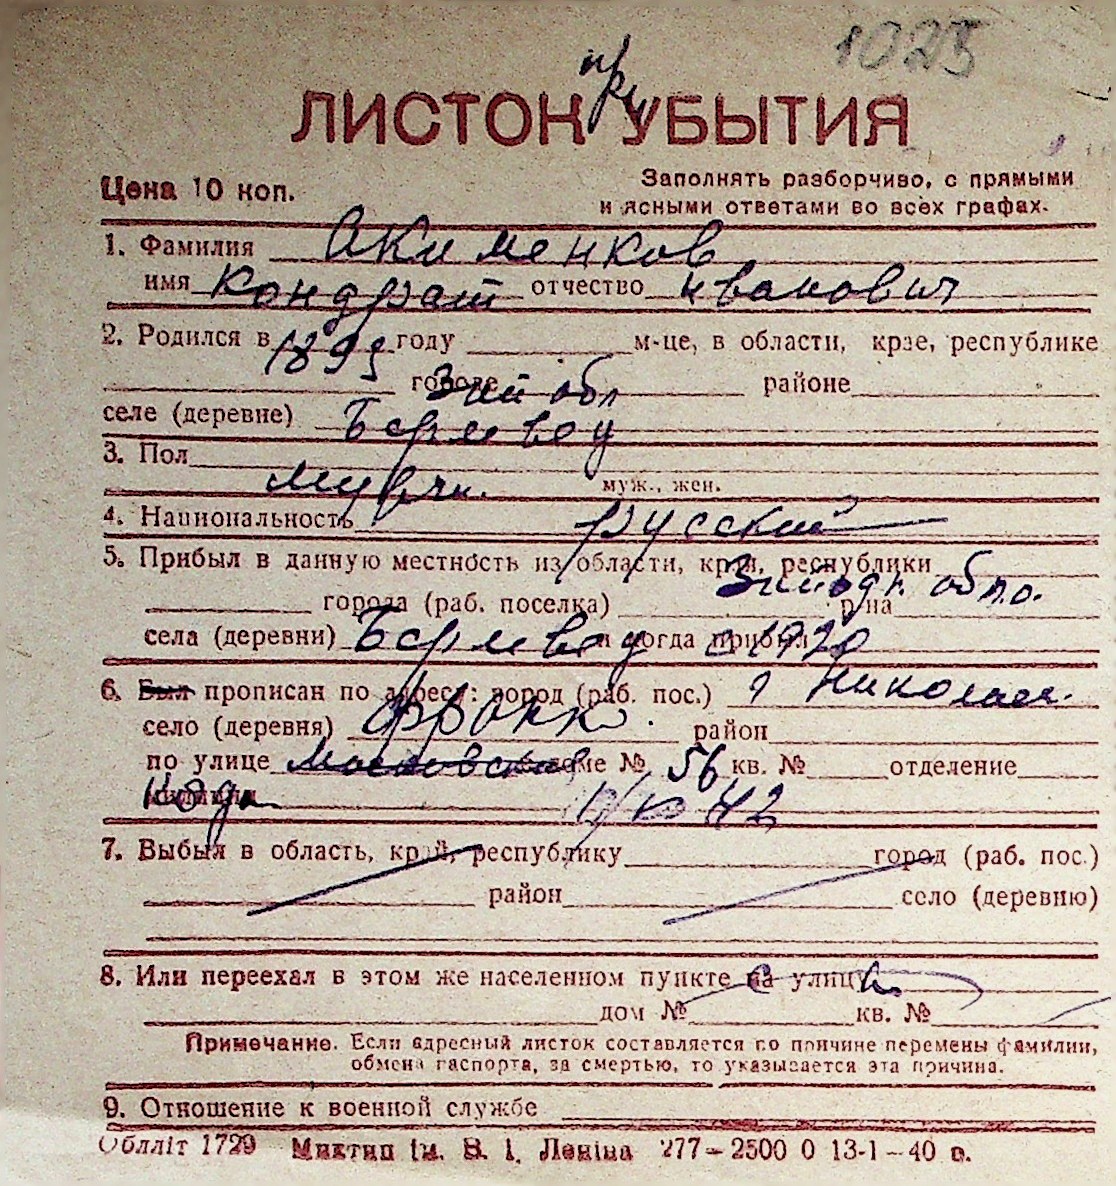 1025
при
ЛИСТОК УБЫТИЯ
Цена 10 коп.
Заполнять разборчиво, с прямыми
и ясными ответами во всех графах.
1. Фамилия Акименков
имя Кондрат отчество Иванович
2. Родился в 1893 году м-це, в области, крае, республике
городе обл районе
селе (деревне)
3. Пол
муж., жен.
4. Национальность русский
5. Прибыл в данную местность из области, края, республики
города (раб. поселка) р-на
села (деревни) и когда прибыл с 1920
6. Был прописан по адресу: город (раб. пос.) г Николаев.
село (деревня) район
по улице Московская доме № 56 кв. № отделение
милиции 42
7. Выбыл в область, край, республику город (раб. пос.)
район село (деревню)
8. Или переехал в этом же населенном пункте на улицу
дом № кв. №
Примечание. Если адресный листок составляется по причине перемены фамилии,
обмена паспорта, за смертью, то указывается эта причина.
9. Отношение к военной службе
Обллiт 1729 Миктип iм. В. I. Ленiна 277–2500 0 13-1–40 в.